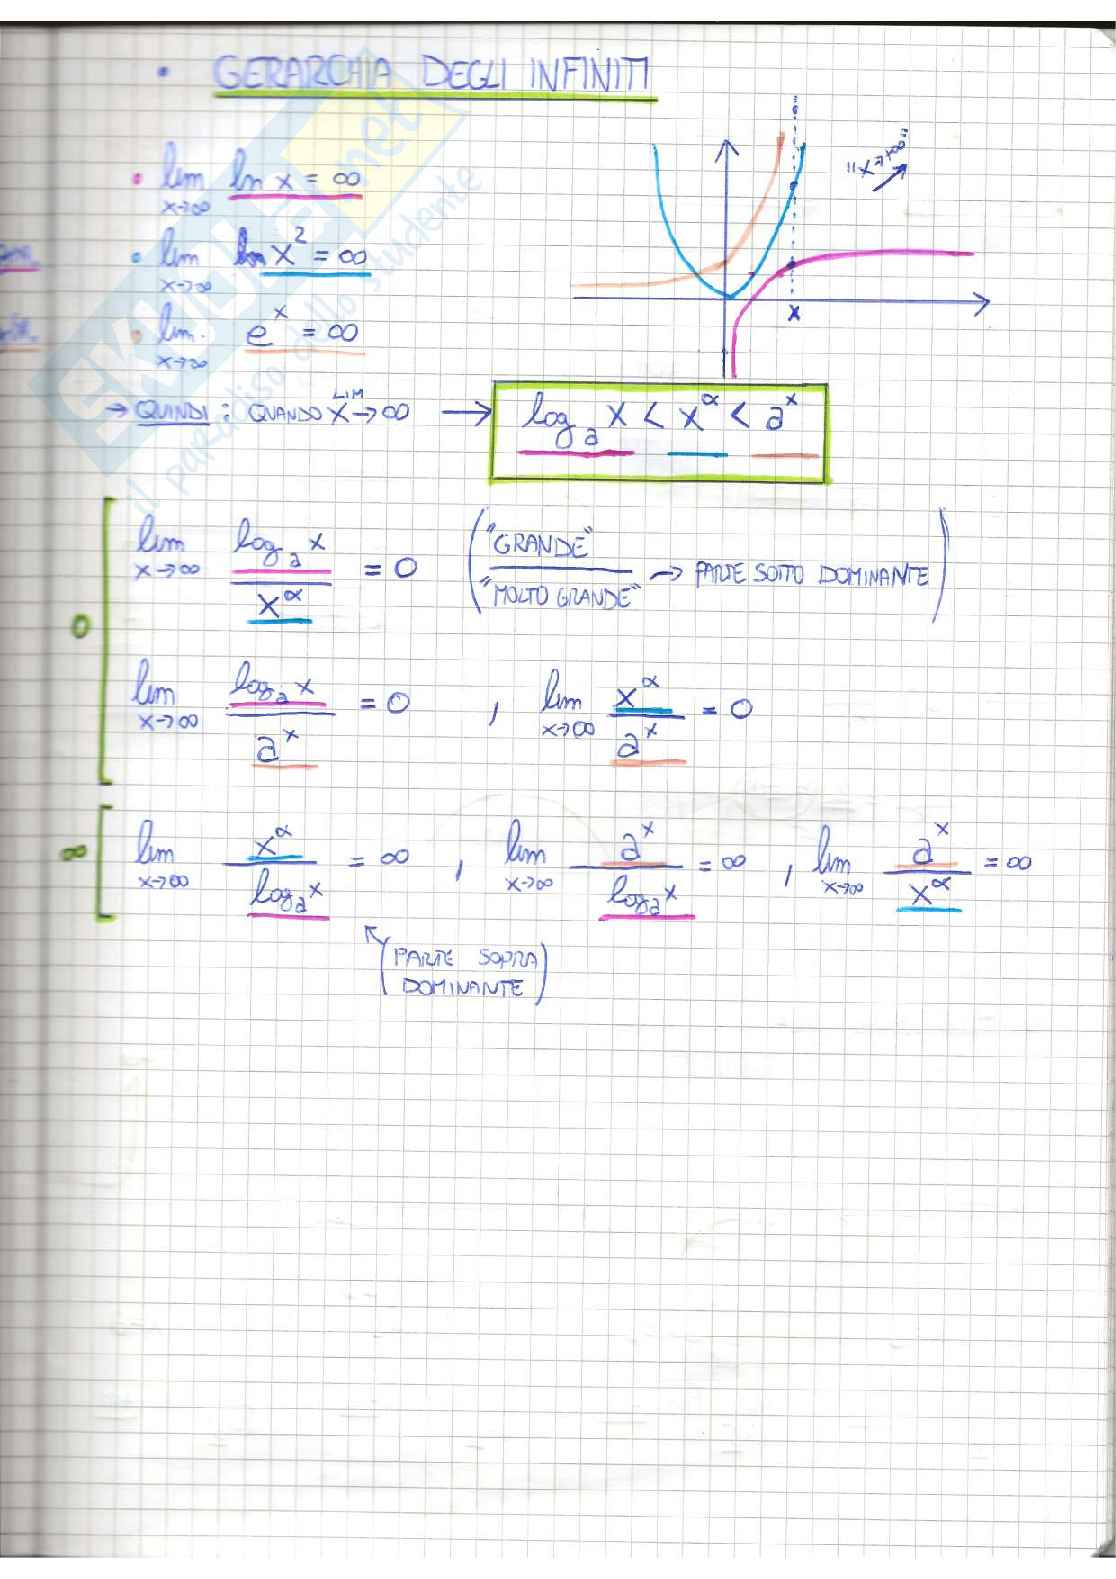 • GERARCHIA DEGLI INFINITI
• lim x→∞ ln x = ∞
• lim x→∞ ln x² = ∞
• lim x→∞ e^x = ∞
"x→+∞"
x
→ QUINDI: QUANDO LIM x→∞ → log_a x < x^α < a^x
0
lim x→∞ log_a x / x^α = 0 ("GRANDE" / "MOLTO GRANDE" → PARTE SOTTO DOMINANTE)
lim x→∞ log_a x / a^x = 0 , lim x→∞ x^α / a^x = 0
∞
lim x→∞ x^α / log_a x = ∞ , lim x→∞ a^x / log_a x = ∞ , lim x→∞ a^x / x^α = ∞
(PARTE SOPRA
DOMINANTE)
SKUOLA.net
il paradiso dello studente